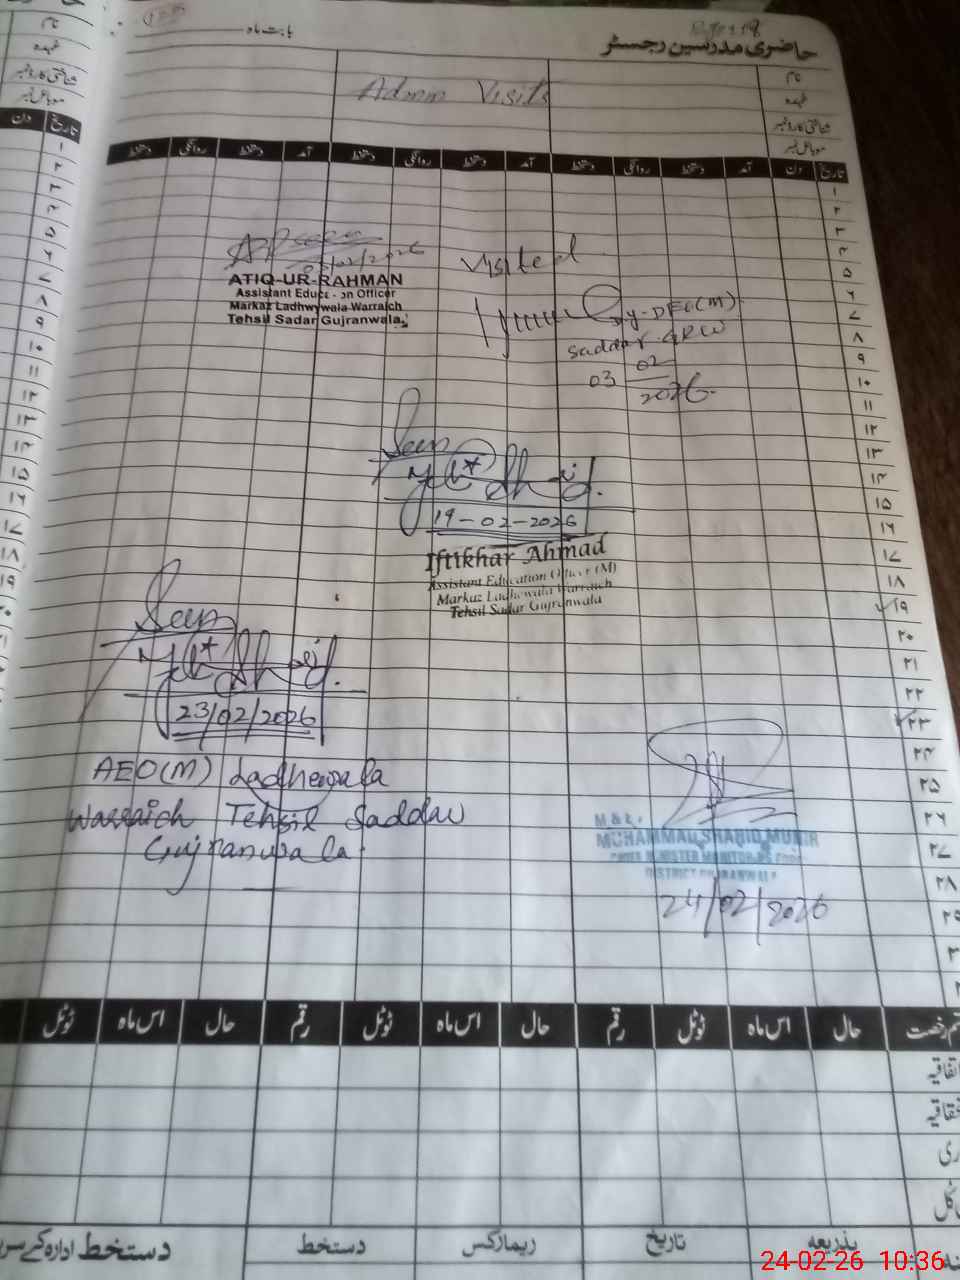 حاضری مدرسین رجسٹر
بابت ماہ
نام
عہدہ
شناختی کارڈ نمبر
موبائل نمبر
Admin Visits
تاریخ دن آمد دستخط روانگی دستخط آمد دستخط روانگی دستخط آمد دستخط روانگی دستخط
ATIQ-UR-RAHMAN
Assistant Education Officer
Markaz Ladhywala Warraich
Tehsil Sadar Gujranwala
Visited
Dy-DEO(M)
Saddar GRW
03 02 2026
Seen
19-02-2026
Iftikhar Ahmad
Assistant Education Officer (M)
Markaz Ladhewala Warraich
Tehsil Sadar Gujranwala
Seen
23/02/2026
AEO(M) Ladhewala
Warraich Tehsil Saddar
Gujranwala
DISTRICT GUJRANWALA
24/02/2026
۱
۲
۳
۴
۵
۶
۷
۸
۹
۱۰
۱۱
۱۲
۱۳
۱۴
۱۵
۱۶
۱۷
۱۸
۱۹
۲۰
۲۱
۲۲
۲۳
۲۴
۲۵
۲۶
۲۷
۲۸
حال اس ماہ ٹوٹل رقم حال اس ماہ ٹوٹل رقم حال اس ماہ ٹوٹل
بذریعہ تاریخ ریمارکس دستخط دستخط ادارہ کے
24-02-26 10:36